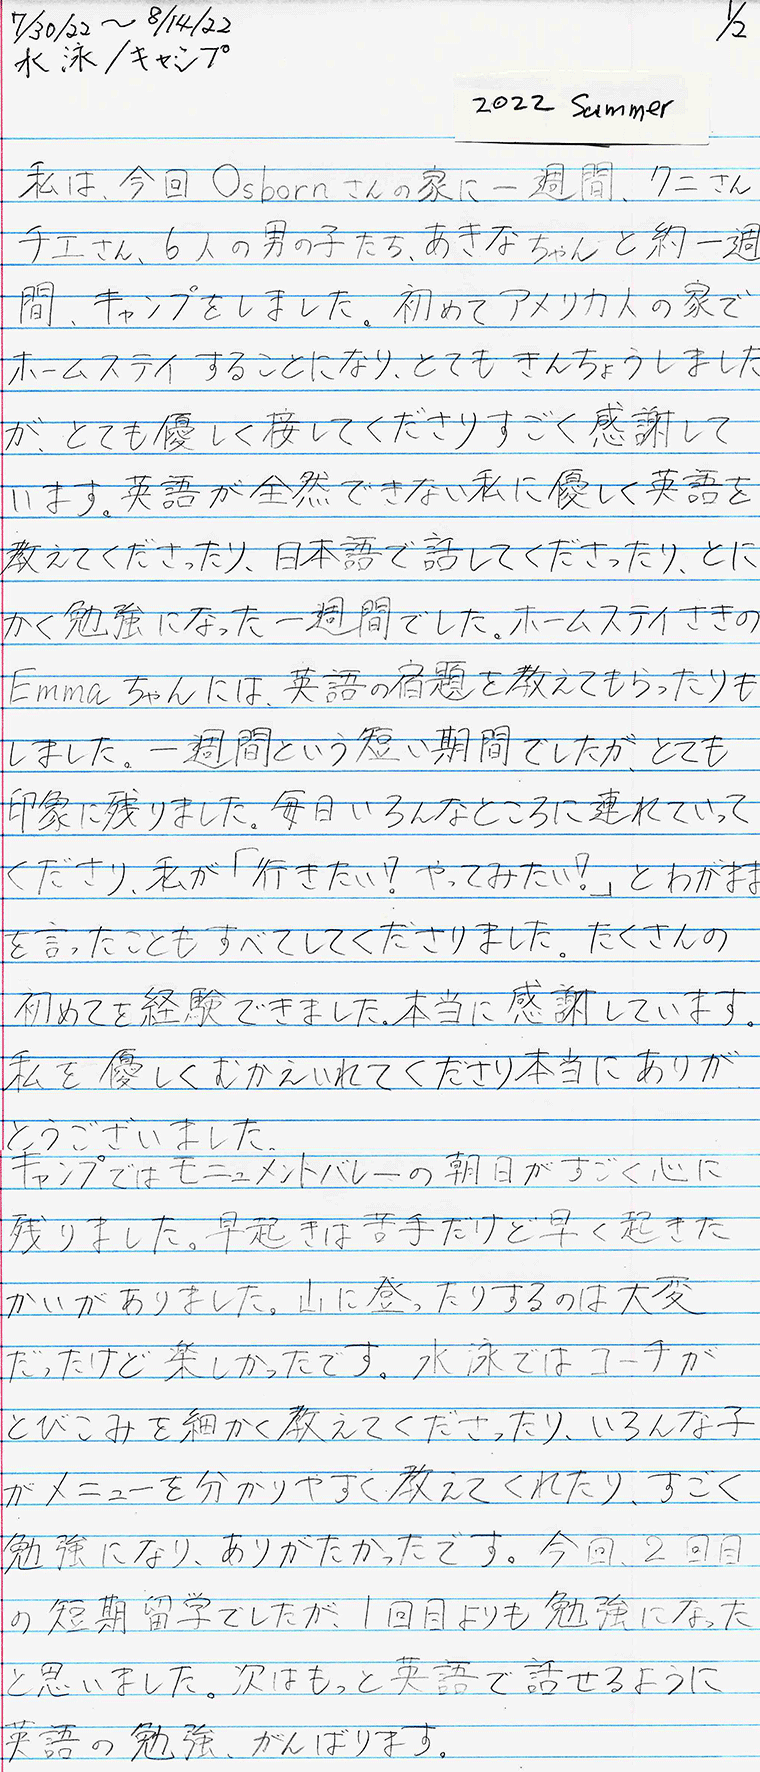 7/30/22 〜 8/14/22
1/2
水泳/キャンプ
2022 Summer
私は、今回Osbornさんの家に一週間、クニさん
チエさん、6人の男の子たち、あきなちゃんと約一週
間、キャンプをしました。初めてアメリカ人の家で
ホームステイすることになり、とてもきんちょうしました
が、とても優しく接してくださりすごく感謝して
います。英語が全然できない私に優しく英語を
教えてくださったり、日本語で話してくださったり、とに
かく勉強になった一週間でした。ホームステイさきの
Emmaちゃんには、英語の宿題を教えてもらったりも
しました。一週間という短い期間でしたが、とても
印象に残りました。毎日いろんなところに連れていって
くださり、私が「行きたい!やってみたい!」とわがまま
を言ったこともすべてしてくださりました。たくさんの
初めてを経験できました。本当に感謝しています。
私を優しくむかえいれてくださり本当にありが
とうございました。
キャンプではモニュメントバレーの朝日がすごく心に
残りました。早起きは苦手だけど早く起きた
かいがありました。山に登ったりするのは大変
だったけど楽しかったです。水泳ではコーチが
とびこみを細かく教えてくださったり、いろんな子
がメニューを分かりやすく教えてくれたり、すごく
勉強になり、ありがたかったです。今回、2回目
の短期留学でしたが、1回目よりも勉強になった
と思いました。次はもっと英語で話せるように
英語の勉強、がんばります。